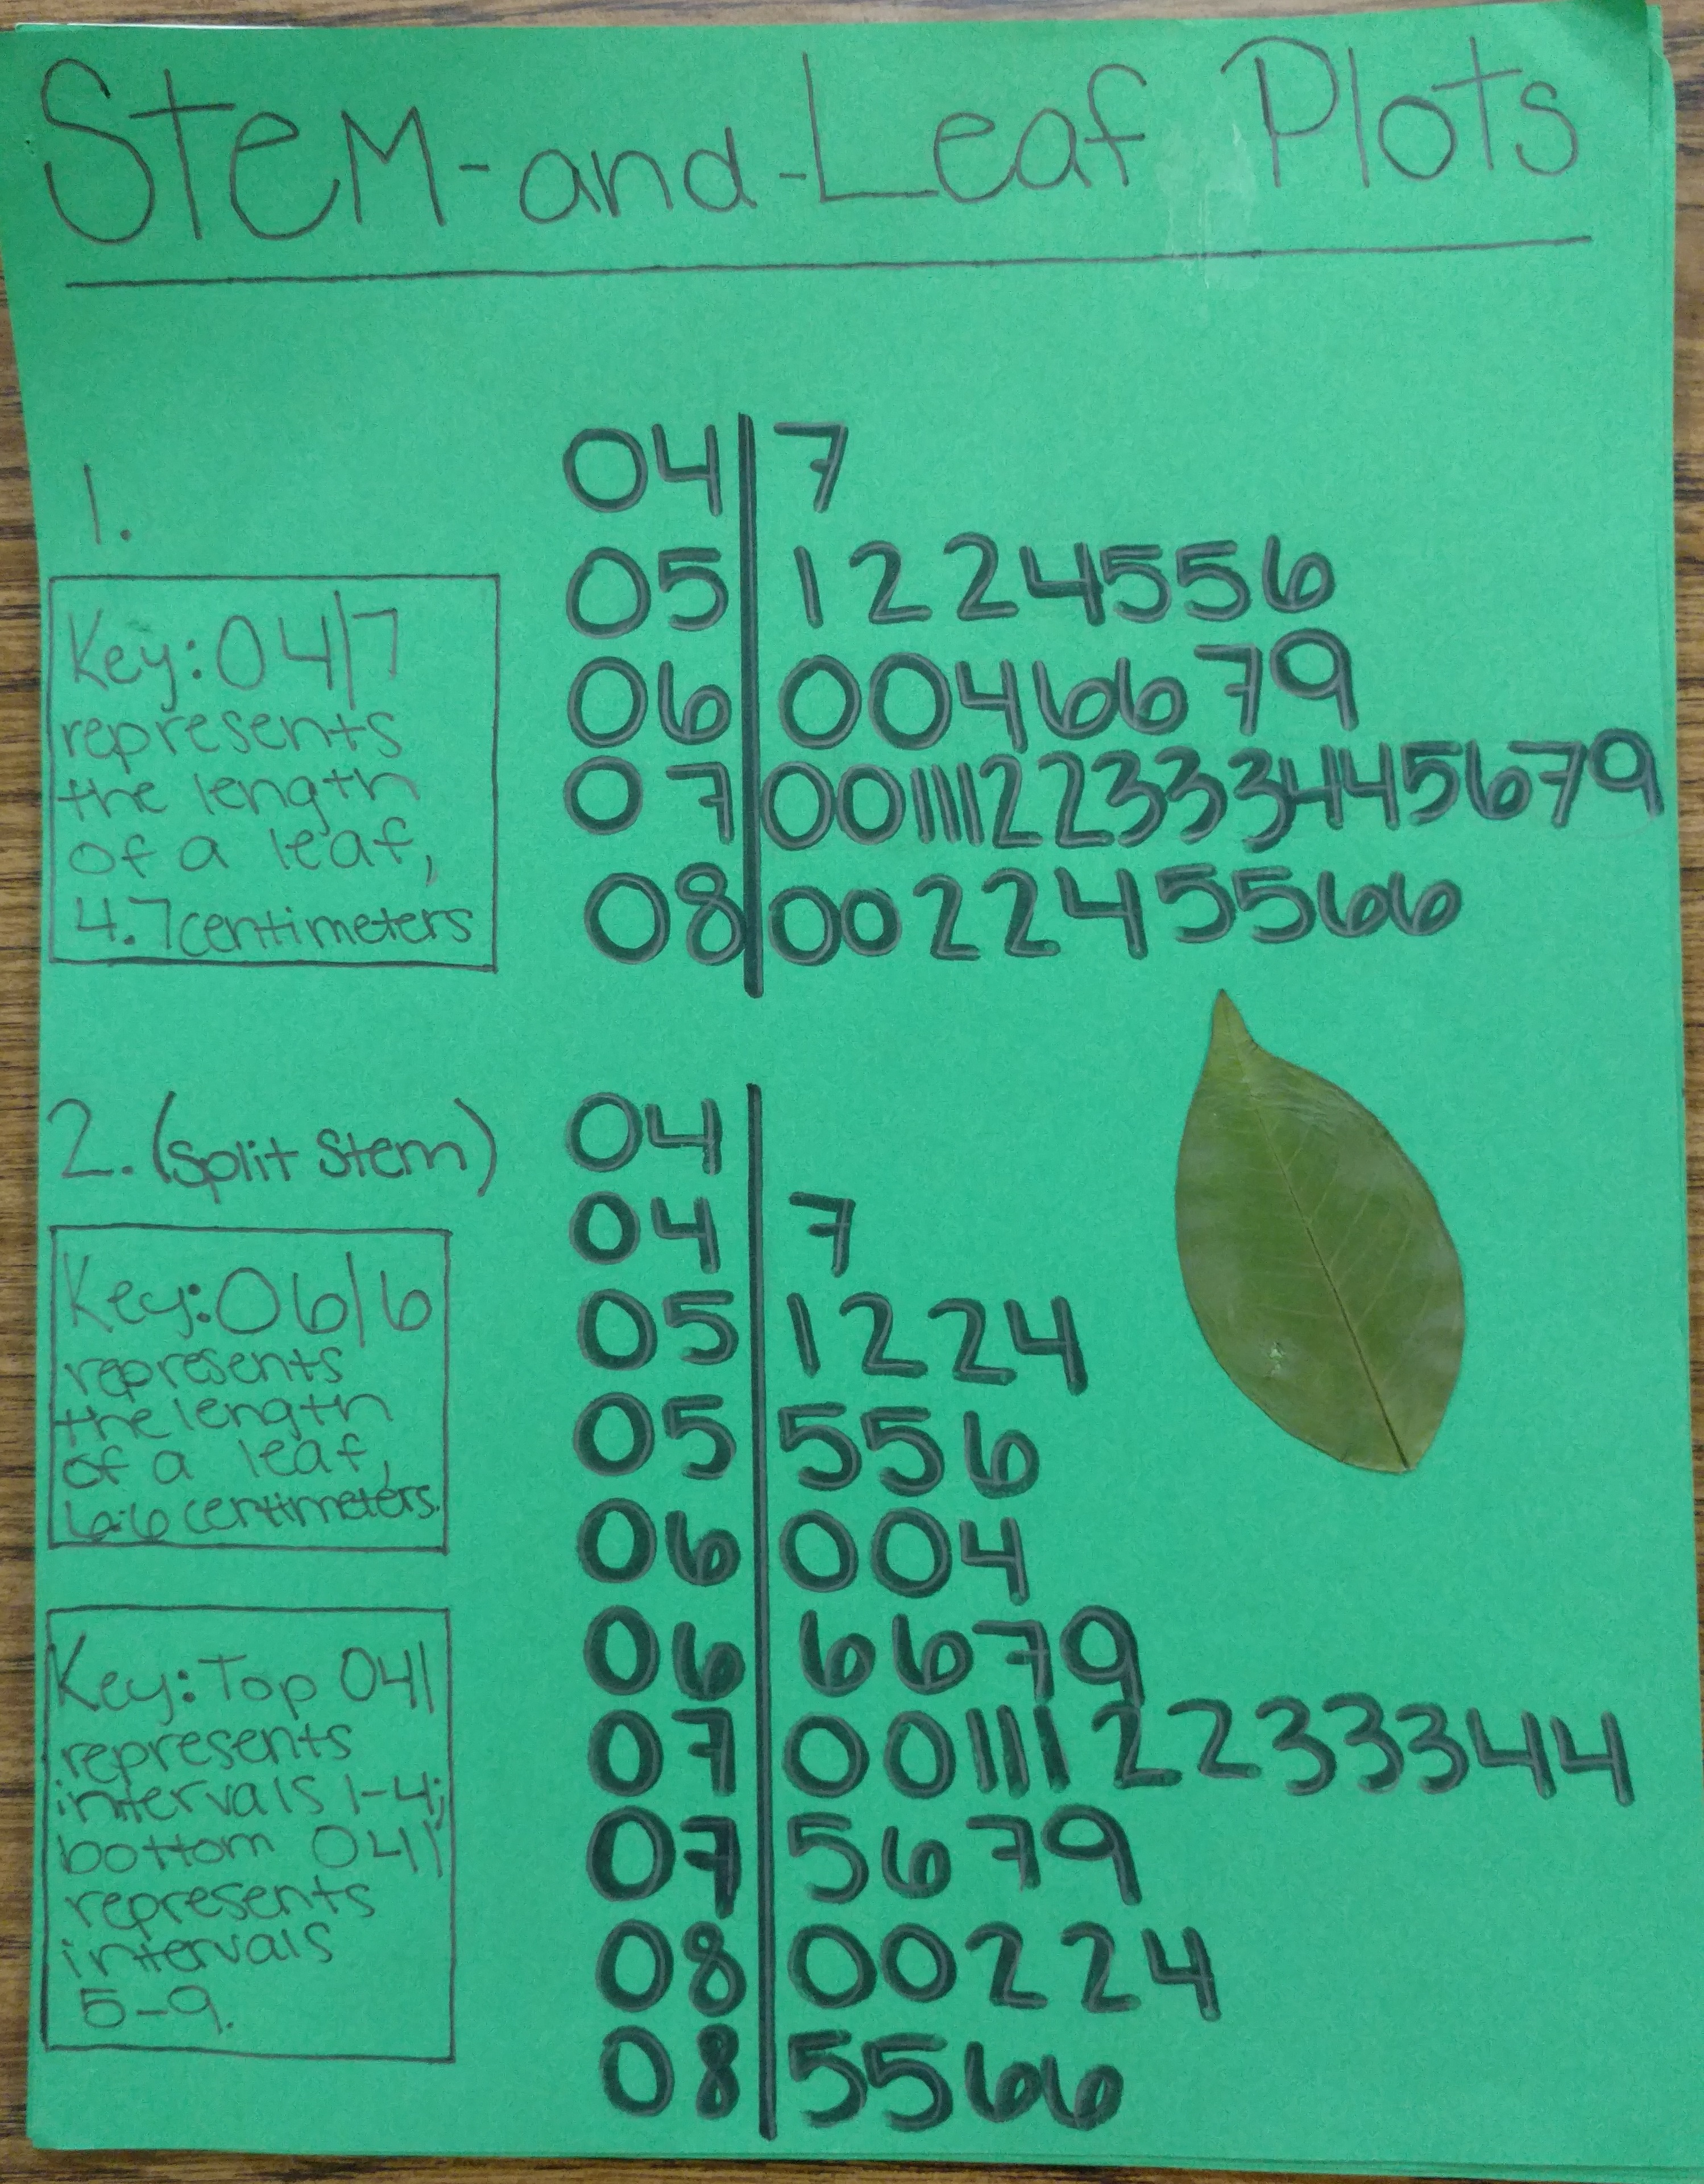 Stem-and-Leaf Plots
1.
Key: 04|7
represents
the length
of a leaf,
4.7 centimeters
04|7
05|1224556
06|0046679
07|00111122333445679
08|002245566
2. (Split Stem)
Key: 06|6
represents
the length
of a leaf,
6.6 centimeters.
Key: Top 04|
represents
intervals 1-4;
bottom 04|
represents
intervals
5-9.
04|
04|7
05|1224
05|556
06|004
06|6679
07|001112233344
07|5679
08|00224
08|5566